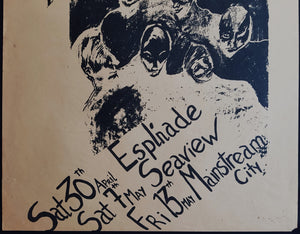 Sat 30th April Esplnade
Sat 7th May Seaview
Fri 13th May Mainstream
City